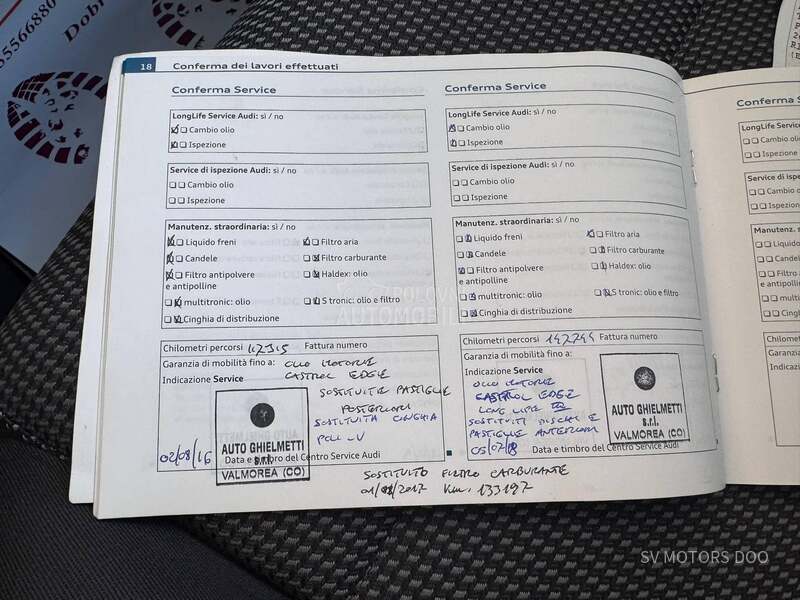 55566880
Dobr
18 Conferma dei lavori effettuati
Conferma Service
LongLife Service Audi: sì / no
Cambio olio
Ispezione
Service di ispezione Audi: sì / no
Cambio olio
Ispezione
Manutenz. straordinaria: sì / no
Liquido freni
Filtro aria
Candele
Filtro carburante
Filtro antipolvere
e antipolline
Haldex: olio
multitronic: olio
S tronic: olio e filtro
Cinghia di distribuzione
Chilometri percorsi Fattura numero
Garanzia di mobilità fino a: OLIO MOTORE
Indicazione Service CASTROL EDGE
SOSTITUITE PASTIGLIE
POSTERIORI
SOSTITUITA CINGHIA
POLY V
AUTO GHIELMETTI
s.r.l.
VALMOREA (CO)
02/08/16 Data e timbro del Centro Service Audi
Conferma Service
LongLife Service Audi: sì / no
Cambio olio
Ispezione
Service di ispezione Audi: sì / no
Cambio olio
Ispezione
Manutenz. straordinaria: sì / no
Liquido freni
Candele
Filtro carburante
Filtro antipolvere
e antipolline
Haldex: olio
multitronic: olio
S tronic: olio e filtro
Cinghia di distribuzione
Chilometri percorsi 142744 Fattura numero
Garanzia di mobilità fino a:
Indicazione Service
OLIO MOTORE
CASTROL EDGE
LONG LIFE III
SOSTITUITI DISCHI E
PASTIGLIE ANTERIORI
05/07/18
AUTO GHIELMETTI
s.r.l.
VALMOREA (CO)
Data e timbro del Centro Service Audi
SOSTITUITO FILTRO CARBURANTE
Km. 133197
Conferma S
LongLife Service A
Cambio olio
Ispezione
Service di ispezio
Cambio olio
Ispezione
Manutenz. straor
Liquido freni
Candele
Filtro antipolv
e antipolline
multitronic: o
Cinghia di dis
Chilometri perco
Garanzia di mobi
Indicazione
POLOVNI
AUTOMOBILI
SV MOTORS DOO